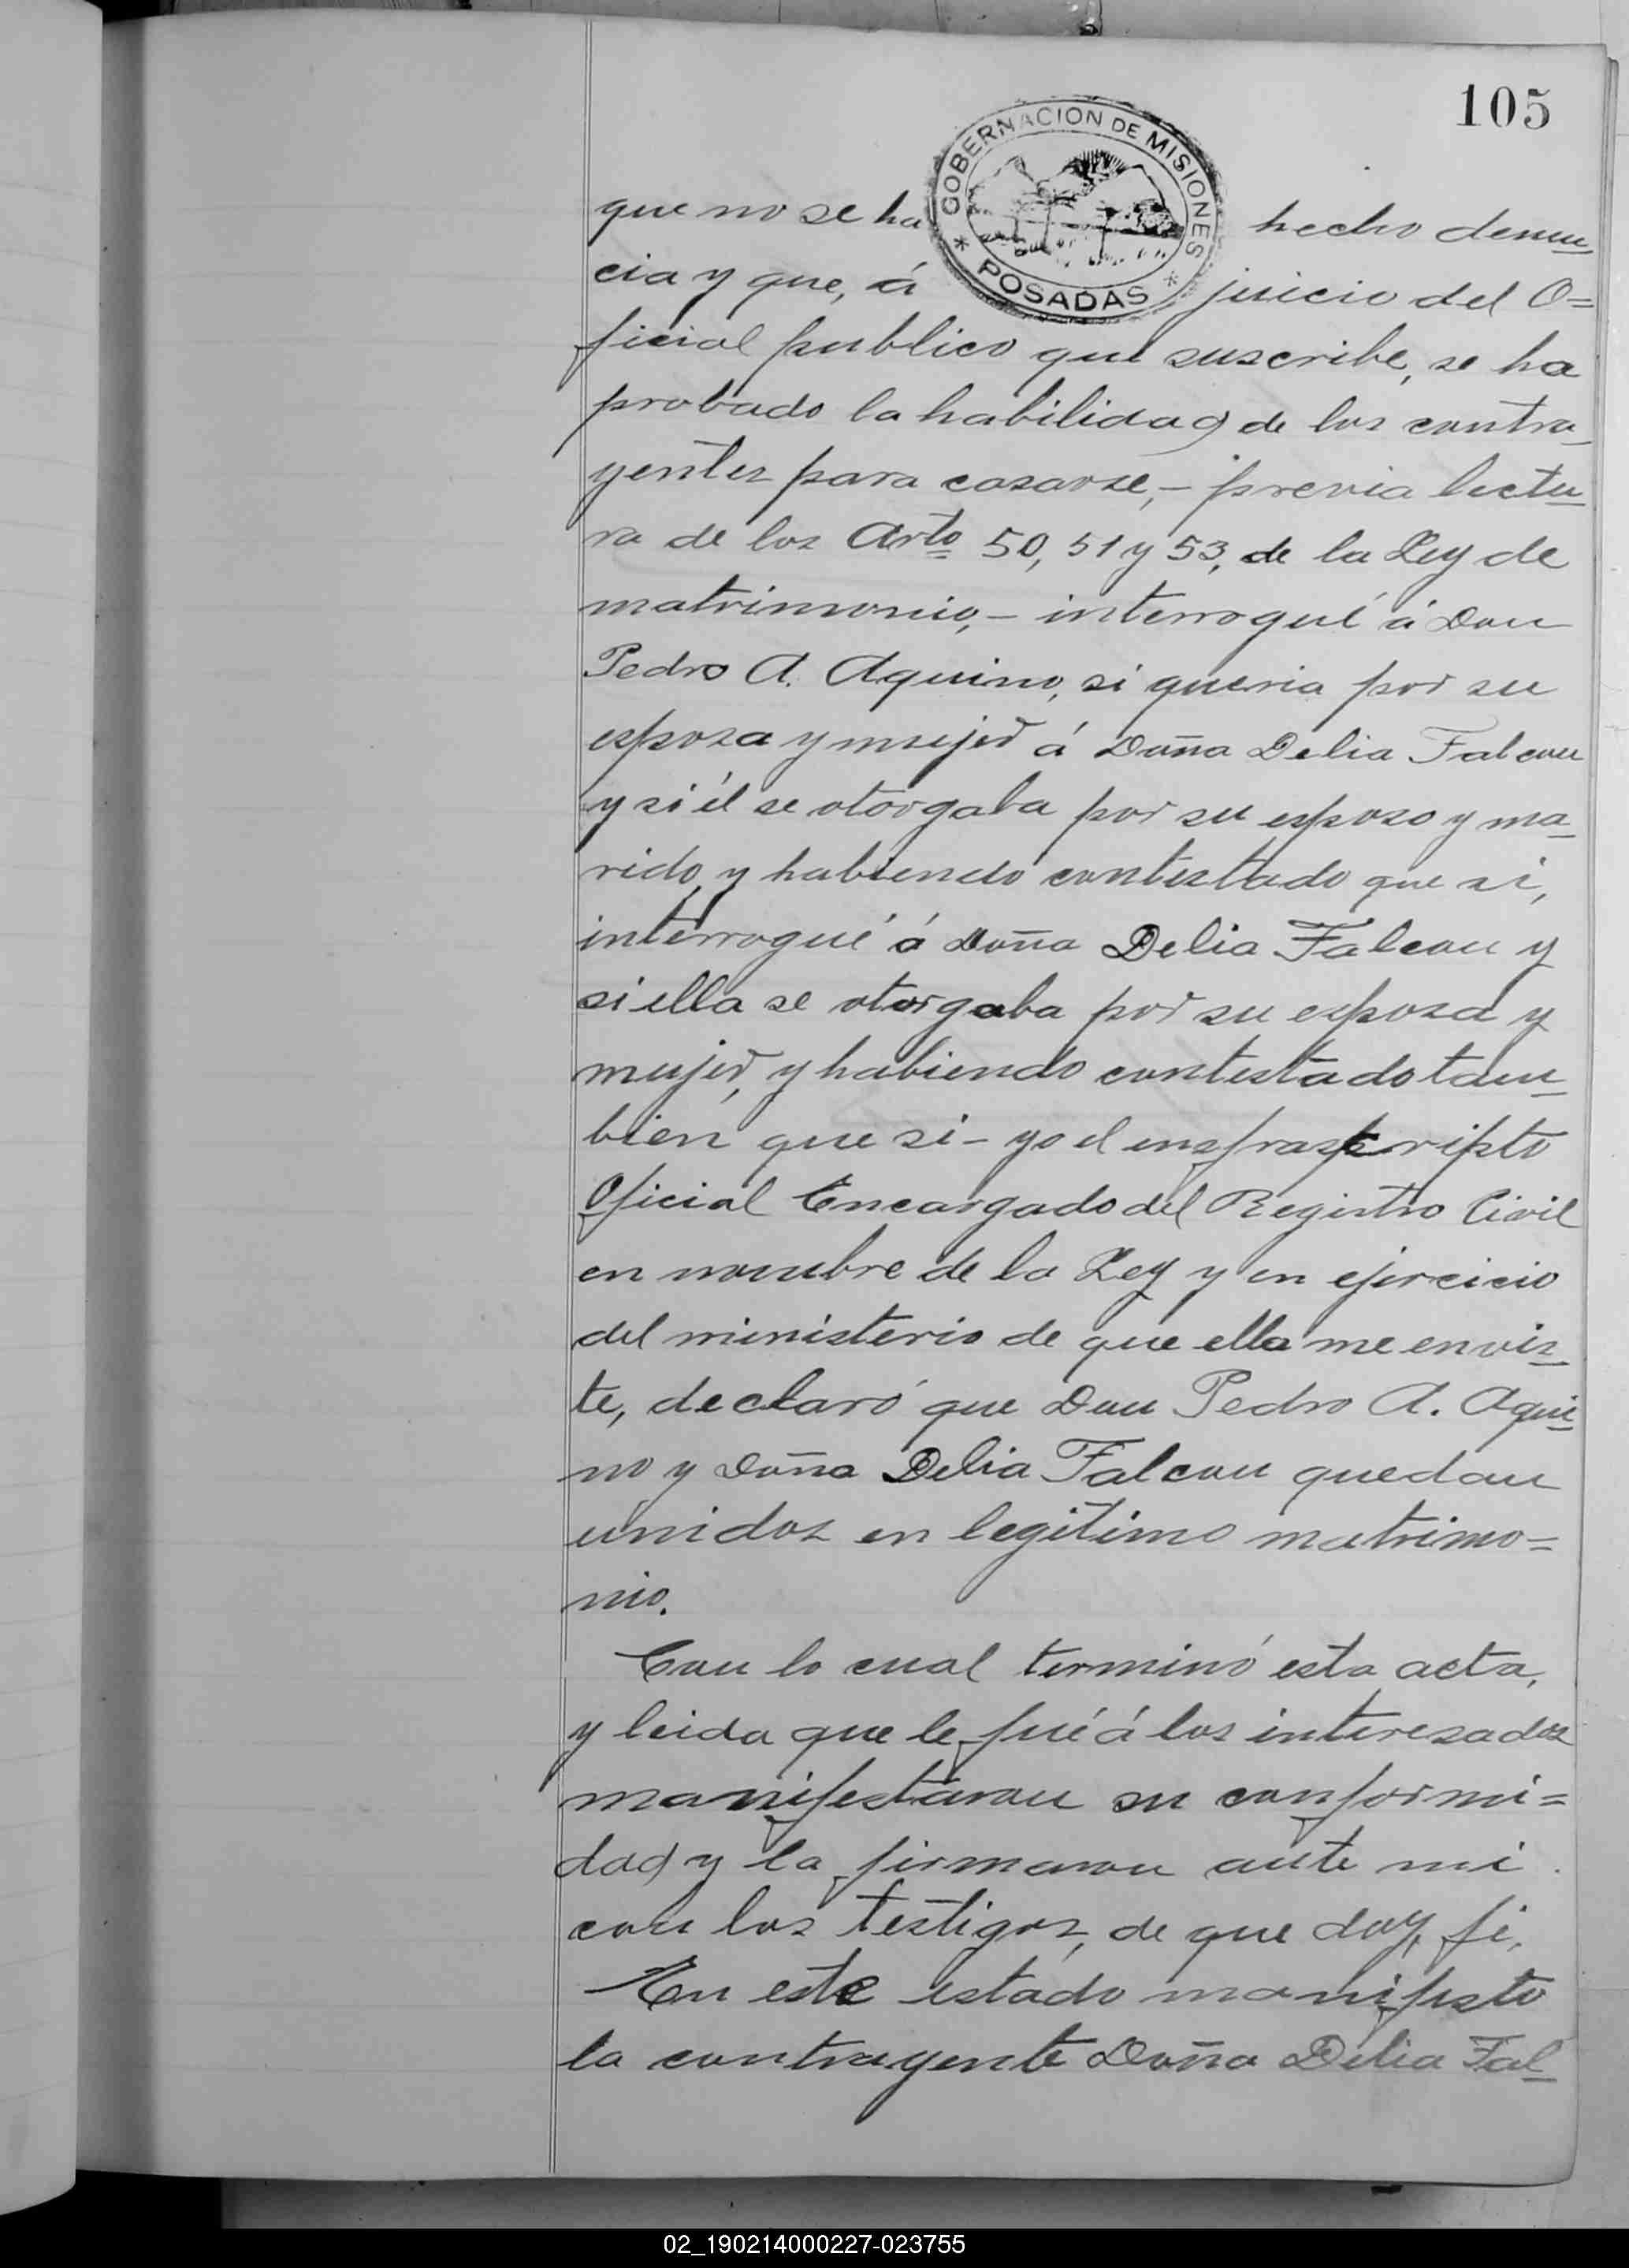 105
GOBERNACION DE MISIONES
* POSADAS *
que no se ha hecho denun
cia y que, á juicio del O=
ficial publico que suscribe, se ha
probado la habilidad de los contra
yentes para casarse, - previa lectu
ra de los Arto 50, 51 y 53, de la Ley de
matrimonio, - interrogué á Don
Pedro A. Aquino, si queria por su
esposa y mujer á Doña Delia Falcon
y si él se otorgaba por su esposo y ma
rido, y habiendo contestado que si,
interrogué á Doña Delia Falcon y
si ella se otorgaba por su esposa y
mujer, y habiendo contestado tam
bién que si - yo el infrascripto
Oficial Encargado del Registro Civil
en nombre de la Ley y en ejercicio
del ministerio de que ella me envis
te, declaró que Don Pedro A. Aqui
no y Doña Delia Falcon quedan
unidos en legítimo matrimo=
nio.
Con lo cual terminó esta acta,
y leida que le fué á los interesados
manifestaron su conformi=
dad y la firmaron ante mi
con los testigos, de que doy fé.
En este estado manifesto
la contrayente Doña Delia Fal
02_190214000227-023755